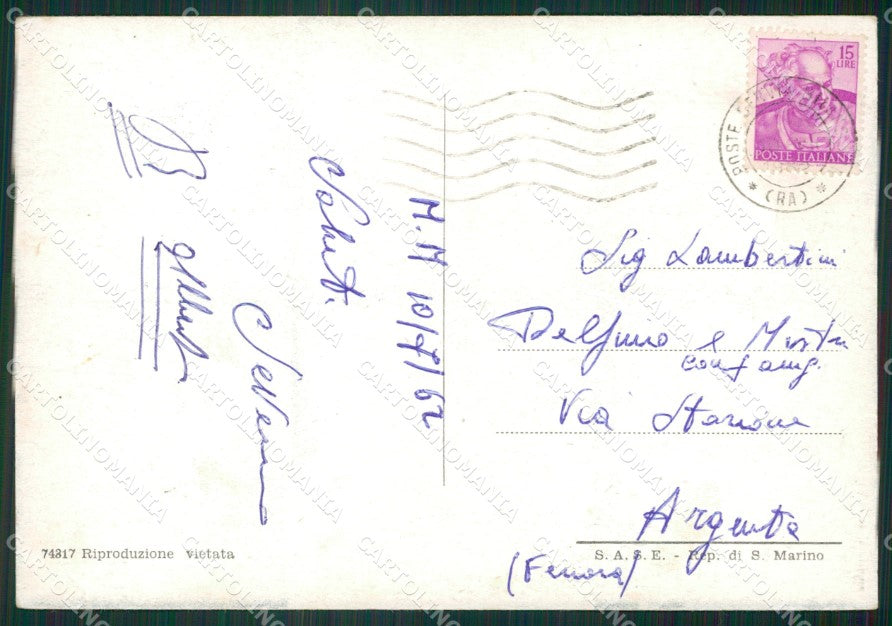 15
LIRE
POSTE ITALIANE
POSTE
(RA)
M.M 10/7/62
Saluti.
Severino
Sig Lambertini
Delfino e
con famig.
Via Stazione
Argenta
(Ferrara)
74317 Riproduzione vietata
S. A. S. E. - Rep. di S. Marino
CARTOLINOMANIA